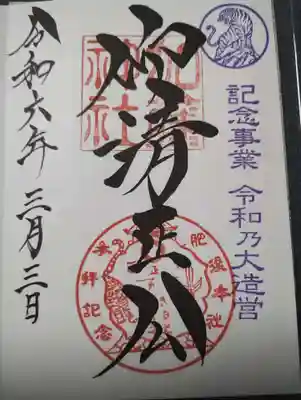 記念事業 令和乃大造営
仰清正公
加藤神社
肥後本社
参拝記念
令和六年 三月三日